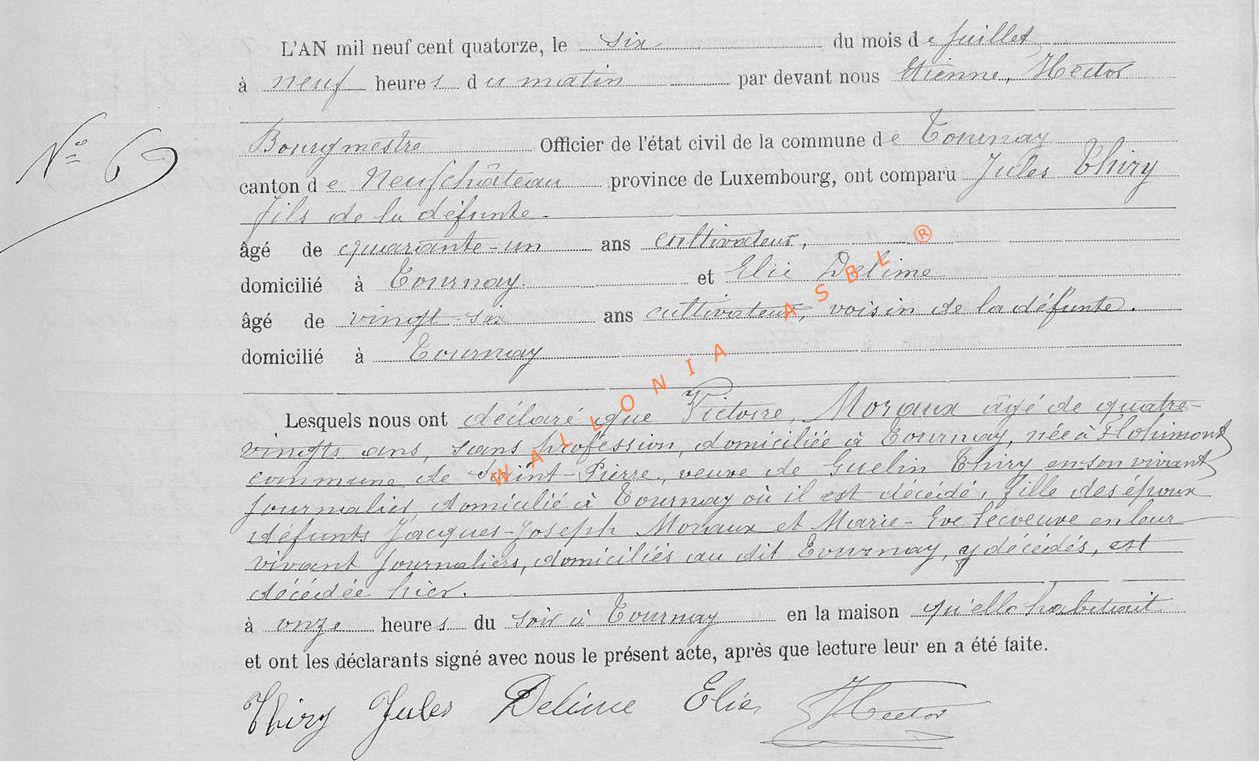 L'AN mil neuf cent quatorze, le six du mois de juillet
à neuf heures du matin par devant nous Etienne, Hector
N° 6
Bourgmestre Officier de l'état civil de la commune de Tournay
canton de Neufchâteau province de Luxembourg, ont comparu Jules Thiry
fils de la défunte.
âgé de quarante-un ans cultivateur,
domicilié à Tournay. et Elie Delime
âgé de vingt-six ans cultivateur, voisin de la défunte.
domicilié à Tournay
Lesquels nous ont déclaré que Victoire, Moraux âgé de quatre-
vingts ans, sans profession, domiciliée à Tournay, née à Flohimont
commune de Saint-Pierre, veuve de Guelin Thiry en son vivant
journalier, domicilié à Tournay où il est décédé, fille des époux
défunts Jacques-Joseph Moraux et Marie-Eve en leur
vivant journaliers, domiciliés au dit Tournay, y décédés, est
décédée hier.
à onze heures du soir à Tournay en la maison qu'elle habitait
et ont les déclarants signé avec nous le présent acte, après que lecture leur en a été faite.
Thiry Jules Delime Elie Hector
WALLONIA ASBL ®